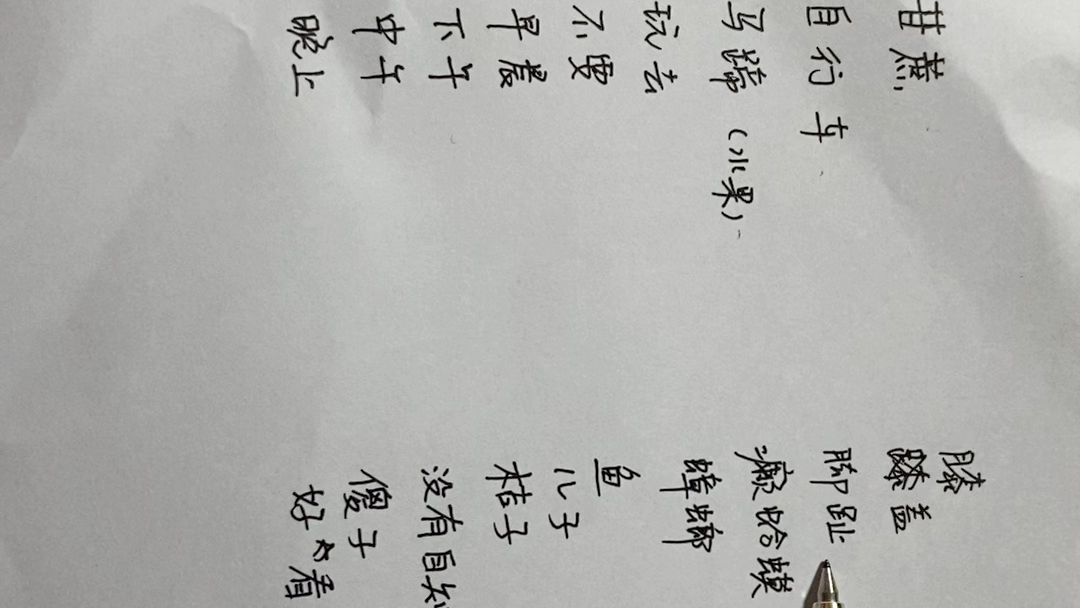 甘蔗
自行车
马蹄（水果）
玩去
不要
早晨
下午
中午
晚上
膝
盖
脚趾
癞蛤蟆
蟑螂
鱼
儿子
桔子
没有自知
傻子
好看